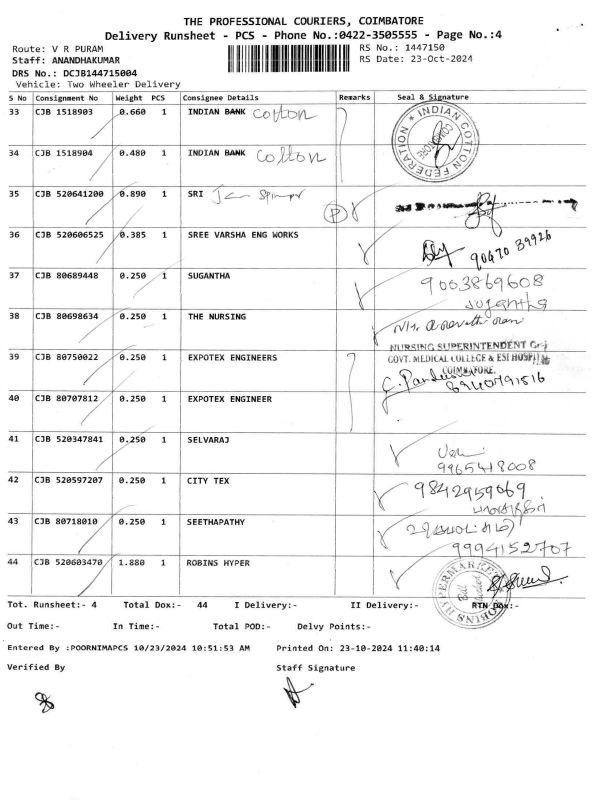 THE PROFESSIONAL COURIERS, COIMBATORE
Delivery Runsheet - PCS - Phone No.:0422-3505555 - Page No.:4
Route: V R PURAM RS No.: 1447150
Staff: ANANDHAKUMAR RS Date: 23-Oct-2024
DRS No.: DCJB144715004
Vehicle: Two Wheeler Delivery
S No Consignment No Weight PCS Consignee Details Remarks Seal & Signature
33 CJB 1518903 0.660 1 INDIAN BANK Cotton
INDIAN COTTON FEDERATION
COIMBATORE
34 CJB 1518904 0.480 1 INDIAN BANK Cotton
35 CJB 520641200 0.890 1 SRI P
36 CJB 520606525 0.385 1 SREE VARSHA ENG WORKS
90470 39926
37 CJB 80689448 0.250 1 SUGANTHA 9003869608
Sugantha
38 CJB 80698634 0.250 1 THE NURSING
NURSING SUPERINTENDENT
39 CJB 80750022 0.250 1 EXPOTEX ENGINEERS GOVT. MEDICAL COLLEGE & ESI HOSPITAL
COIMBATORE.
40 CJB 80707812 0.250 1 EXPOTEX ENGINEER
41 CJB 520347841 0.250 1 SELVARAJ
9965418008
42 CJB 520597207 0.250 1 CITY TEX 9842959069
43 CJB 80718010 0.250 1 SEETHAPATHY
9994152707
44 CJB 520603470 1.880 1 ROBINS HYPER
ROBINS HYPERMARKET
Tot. Runsheet:- 4 Total Dox:- 44 I Delivery:- II Delivery:- RTN Dox:-
Out Time:- In Time:- Total POD:- Delvy Points:-
Entered By :POORNIMAPCS 10/23/2024 10:51:53 AM Printed On: 23-10-2024 11:40:14
Verified By Staff Signature